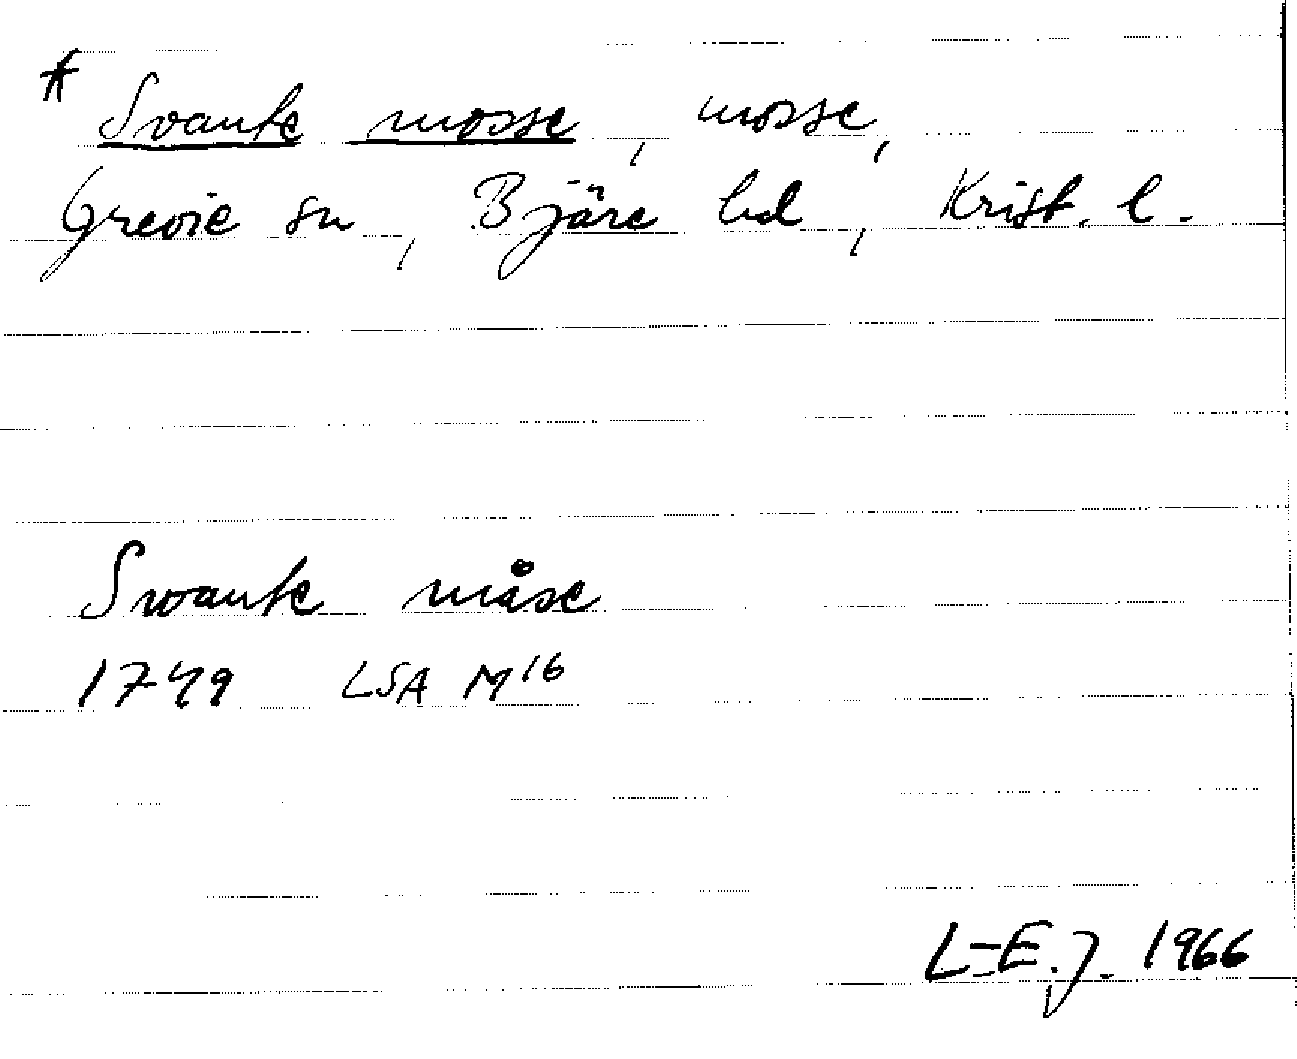 * Svante mosse, mosse,
Grevie sn, Bjäre hd, Krist. l.
Swante måse
1749 LSA M16
L-E.J. 1966